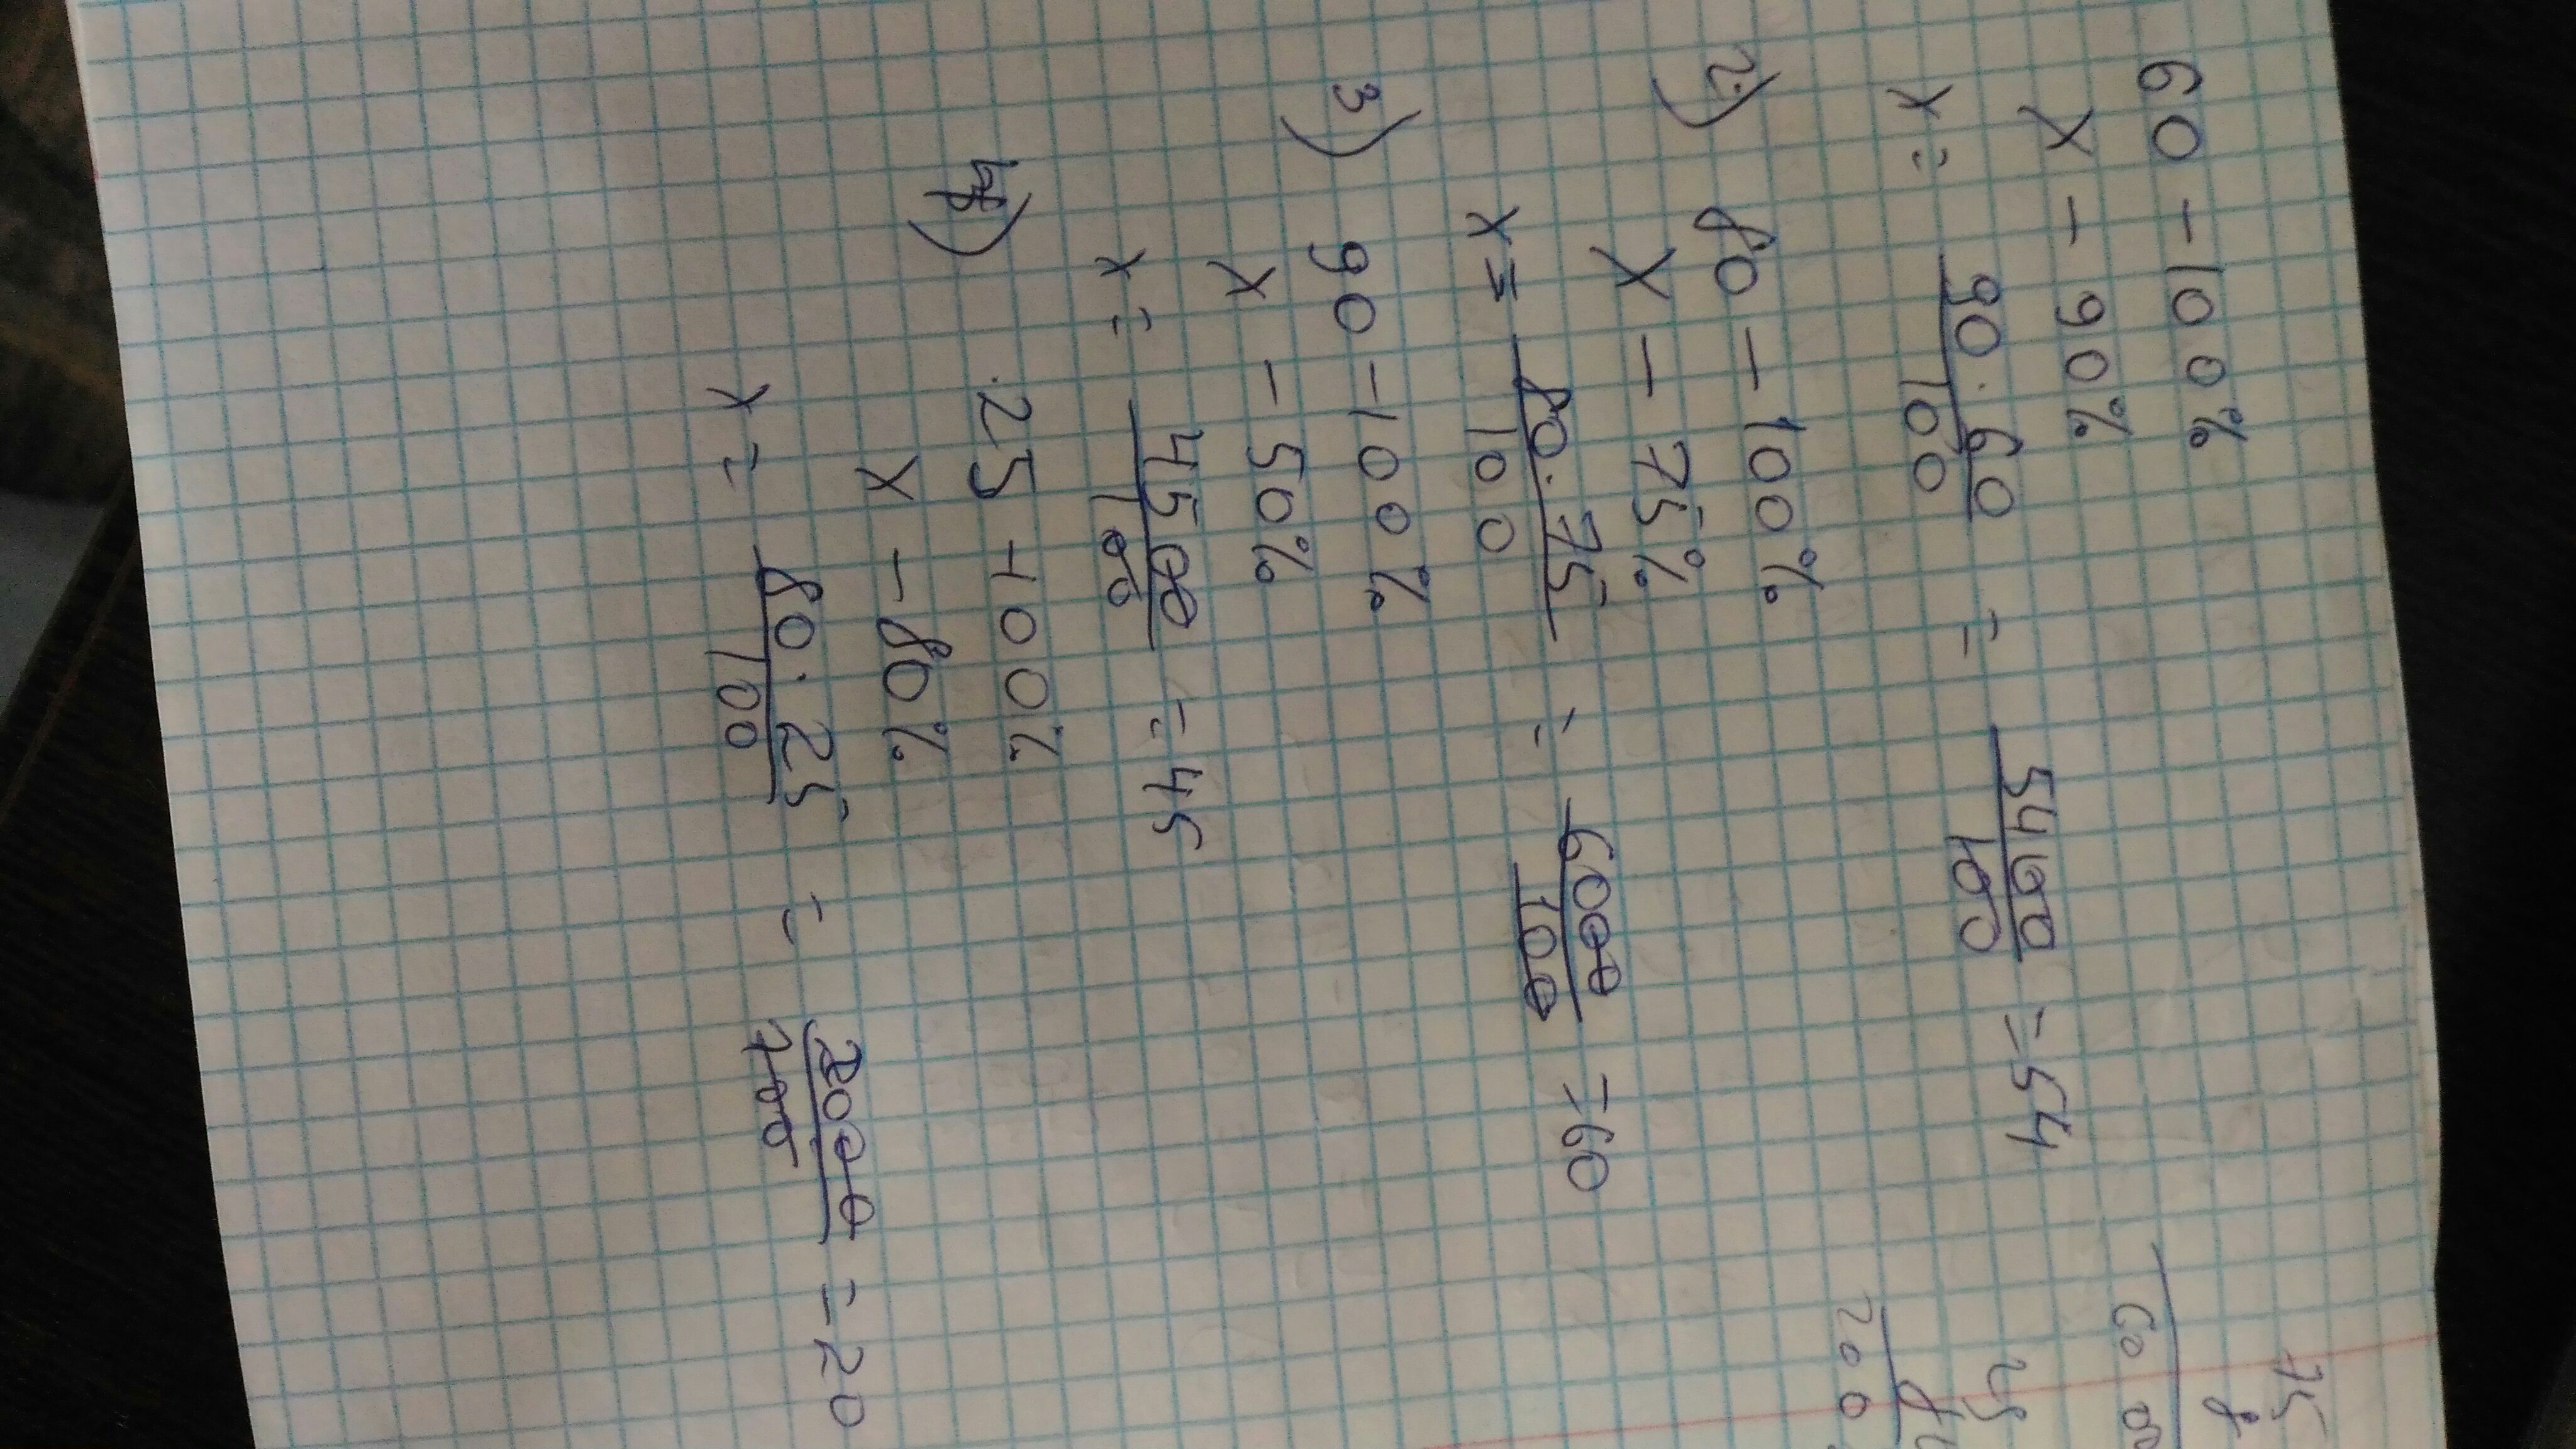 60 - 100%
x - 90%
x = 90 · 60 / 100 = 5400 / 100 = 54
2) 80 - 100%
x - 75%
x = 80 · 75 / 100 = 6000 / 100 = 60
3) 90 - 100%
x - 50%
x = 4500 / 100 = 45
4) 25 - 100%
x - 80%
x = 80 · 25 / 100 = 2000 / 100 = 20
75
8
600
25
8
200